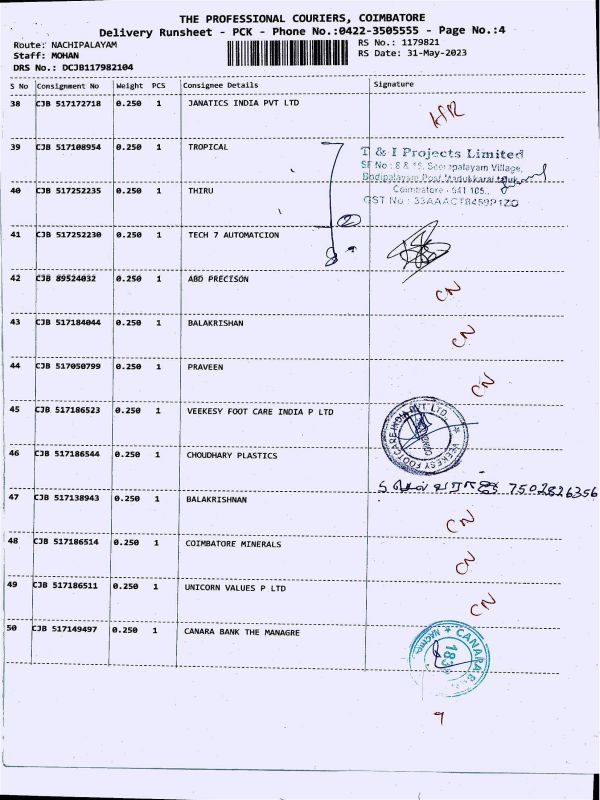 THE PROFESSIONAL COURIERS, COIMBATORE
Delivery Runsheet - PCK - Phone No.:0422-3505555 - Page No.:4
Route: NACHIPALAYAM RS No.: 1179821
Staff: MOHAN RS Date: 31-May-2023
DRS No.: DCJB117982104
S No Consignment No Weight PCS Consignee Details Signature
38 CJB 517172718 0.250 1 JANATICS INDIA PVT LTD
39 CJB 517108954 0.250 1 TROPICAL
T & I Projects Limited
SF No : 8 & 15, Seerapalayam Village,
Bodipalayam Post, Madukkarai Taluk,
40 CJB 517252235 0.250 1 THIRU
Coimbatore - 641 105.
GST No : 33AAACT8459P1ZO
2
41 CJB 517252230 0.250 1 TECH 7 AUTOMATCION
42 CJB 89524032 0.250 1 ABD PRECISON
CN
43 CJB 517184044 0.250 1 BALAKRISHAN
CN
44 CJB 517050799 0.250 1 PRAVEEN
CN
45 CJB 517186523 0.250 1 VEEKESY FOOT CARE INDIA P LTD
VEEKESY FOOTCARE INDIA PVT LTD.
46 CJB 517186544 0.250 1 CHOUDHARY PLASTICS
7502826356
47 CJB 517138943 0.250 1 BALAKRISHNAN
CN
48 CJB 517186514 0.250 1 COIMBATORE MINERALS
CN
49 CJB 517186511 0.250 1 UNICORN VALUES P LTD
CN
50 CJB 517149497 0.250 1 CANARA BANK THE MANAGRE
CANARA
9